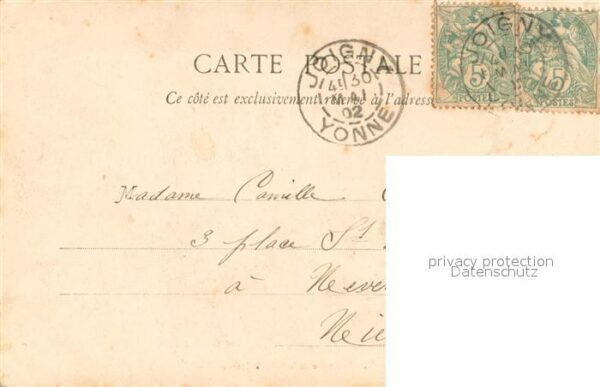 CARTE POSTALE
Ce côté est exclusivement réservé à l'adresse
JOIGNY
4E 30
MAI
02
YONNE
JOIGNY
5
5
POSTES
POSTES
Madame Camille
3 place St
à Never
Niè
privacy protection
Datenschutz